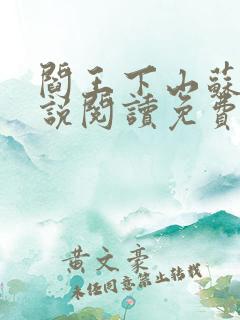 閻王下山蘇
說閱讀免費
黃文豪
未經同意禁止轉載